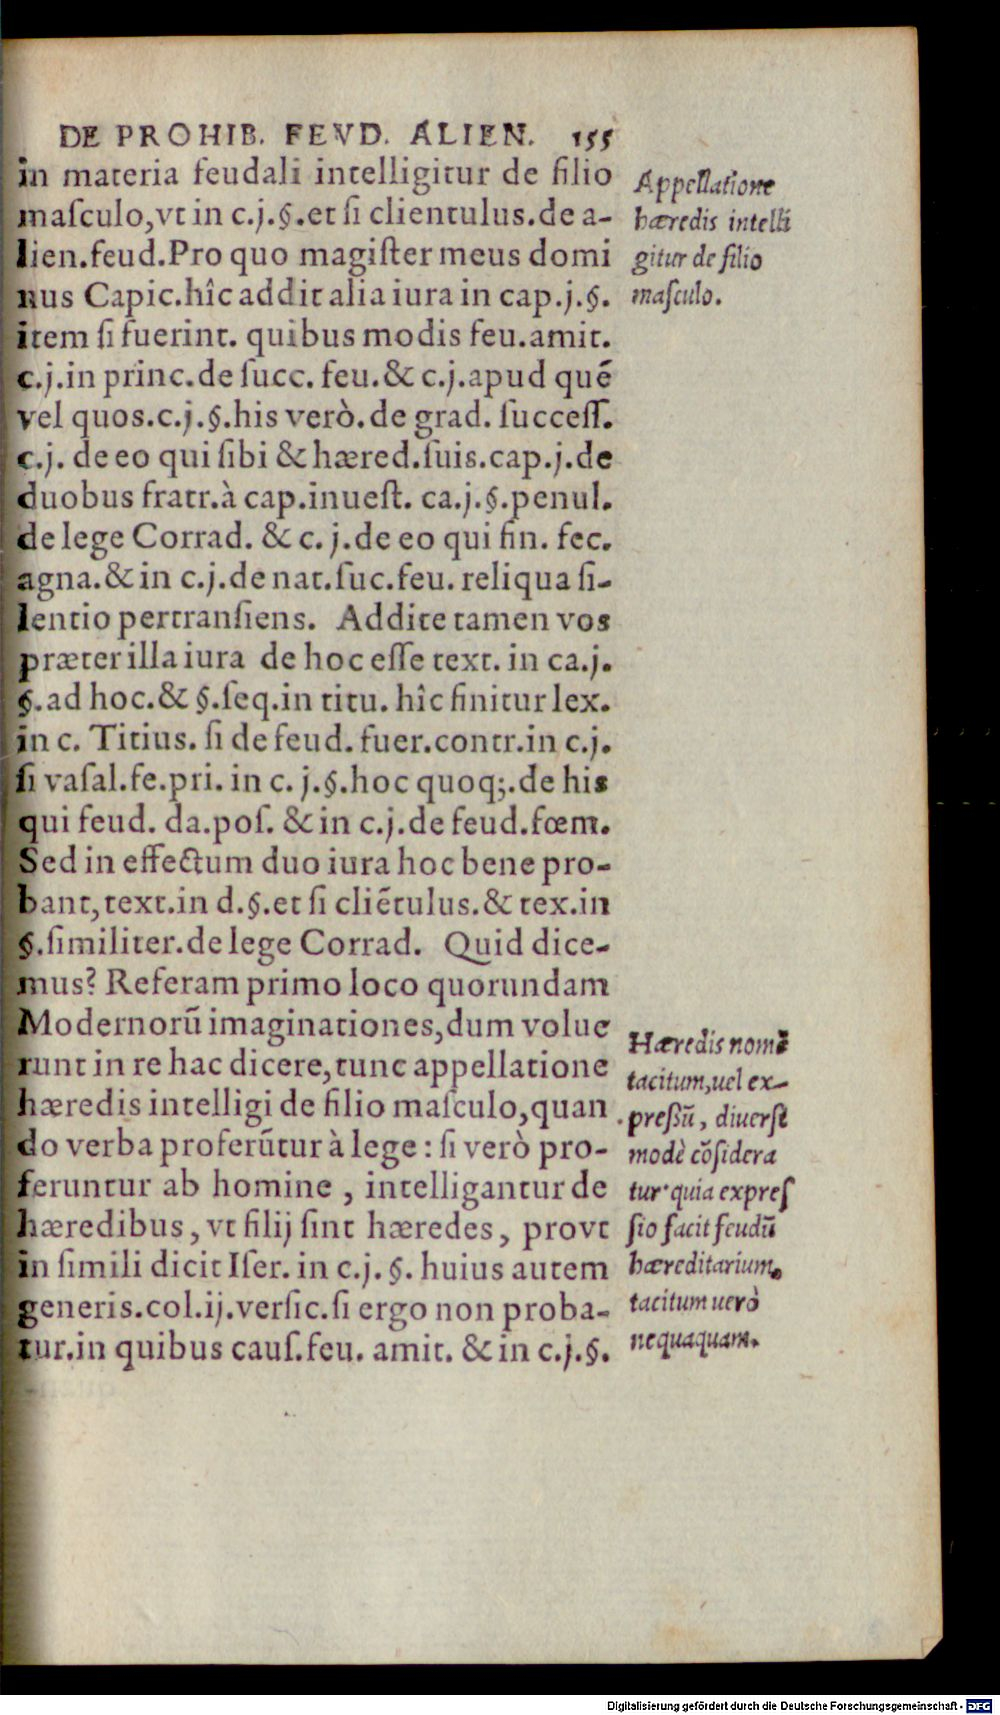 DE PROHIB. FEVD. ALIEN. 155
in materia feudali intelligitur de filio
maſculo,vt in c.j.§.et ſi clientulus.de a-
lien.feud.Pro quo magiſter meus domi
nus Capic.hîc addit alia iura in cap.j.§.
item ſi fuerint. quibus modis feu.amit.
c.j.in princ.de ſucc. feu.& c.j.apud quē
vel quos.c.j.§.his verò.de grad. ſucceſſ.
c.j. de eo qui ſibi & hæred.ſuis.cap.j.de
duobus fratr.à cap.inueſt. ca.j.§.penul.
de lege Corrad. & c. j.de eo qui fin. fec.
agna.& in c.j.de nat.ſuc.feu. reliqua ſi-
lentio pertranſiens. Addite tamen vos
præter illa iura de hoc eſſe text. in ca.j.
§.ad hoc.& §.ſeq.in titu. hîc finitur lex.
in c. Titius. ſi de feud. fuer.contr.in c.j.
ſi vaſal.fe.pri. in c. j.§.hoc quoq;.de his
qui feud. da.poſ. & in c.j.de feud.fœm.
Sed in effectum duo iura hoc bene pro-
bant,text.in d.§.et ſi cliētulus.& tex.in
§.ſimiliter.de lege Corrad. Quid dice-
mus? Referam primo loco quorundam
Modernorū imaginationes,dum volue
runt in re hac dicere,tunc appellatione
hæredis intelligi de filio maſculo,quan
do verba proferūtur à lege : ſi verò pro-
feruntur ab homine , intelligantur de
hæredibus , vt filij ſint hæredes , provt
in ſimili dicit Iſer. in c.j. §. huius autem
generis.col.ij.verſic.ſi ergo non proba-
tur.in quibus cauſ.feu. amit. & in c.j.§.
Appellatione
hæredis intelli
gitur de filio
maſculo.
Hæredis nomē
tacitum,uel ex-
preßū , diuerſi
modè cōſidera
tur· quia expreſ
ſio facit feudū
hæreditarium,
tacitum uerò
nequaquam.
Digitalisierung gefördert durch die Deutsche Forschungsgemeinschaft - DFG